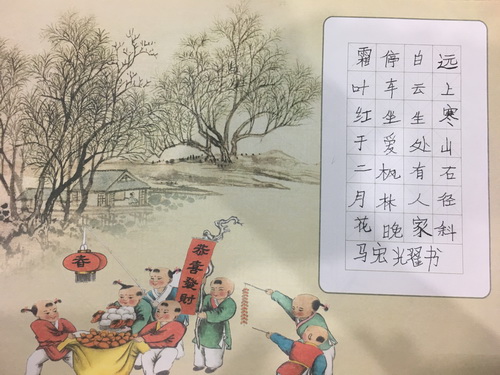 远上寒山石径科
白云生处有人家
停车坐爱枫林晚
霜叶红于二月花
马宏耀书
春
恭喜發財